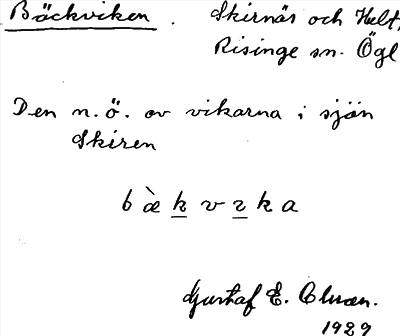 Bäckviken. Skirnäs och Hult,
Risinge sn. Ögl
Den n.ö. av vikarna i sjön
Skiren
bæ̀kvɩka
Gustaf E.
1929